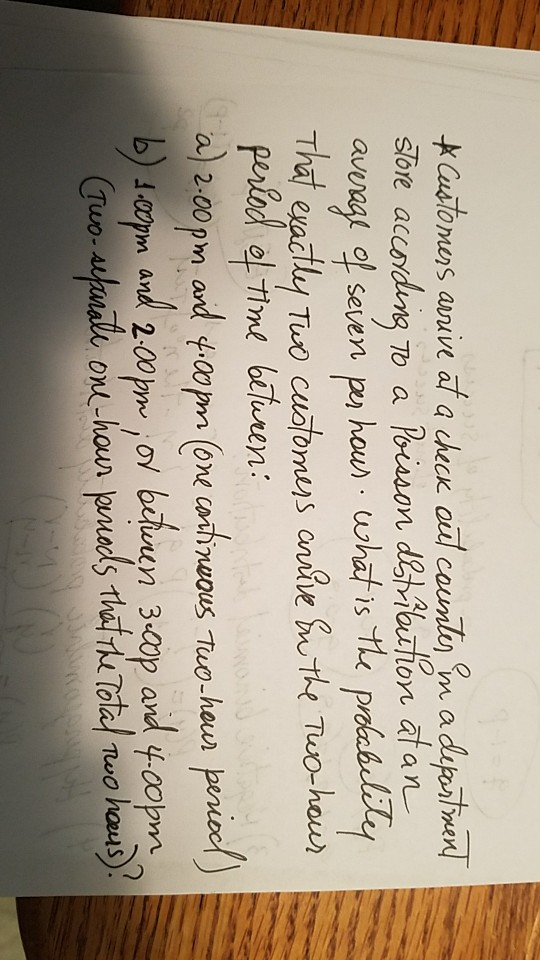 * Customers arrive at a check out counter in a department
store according to a Poisson distribution at an
average of seven per hour. what is the probability
That exactly Two customers arrive in the Two-hour
period of time between:
a) 2.00 pm and 4.00pm (one continuous Two-hour period)
b) 1.00pm and 2.00pm, or between 3.00p and 4.00pm
(Two-separate one-hour periods that the Total Two hours)?